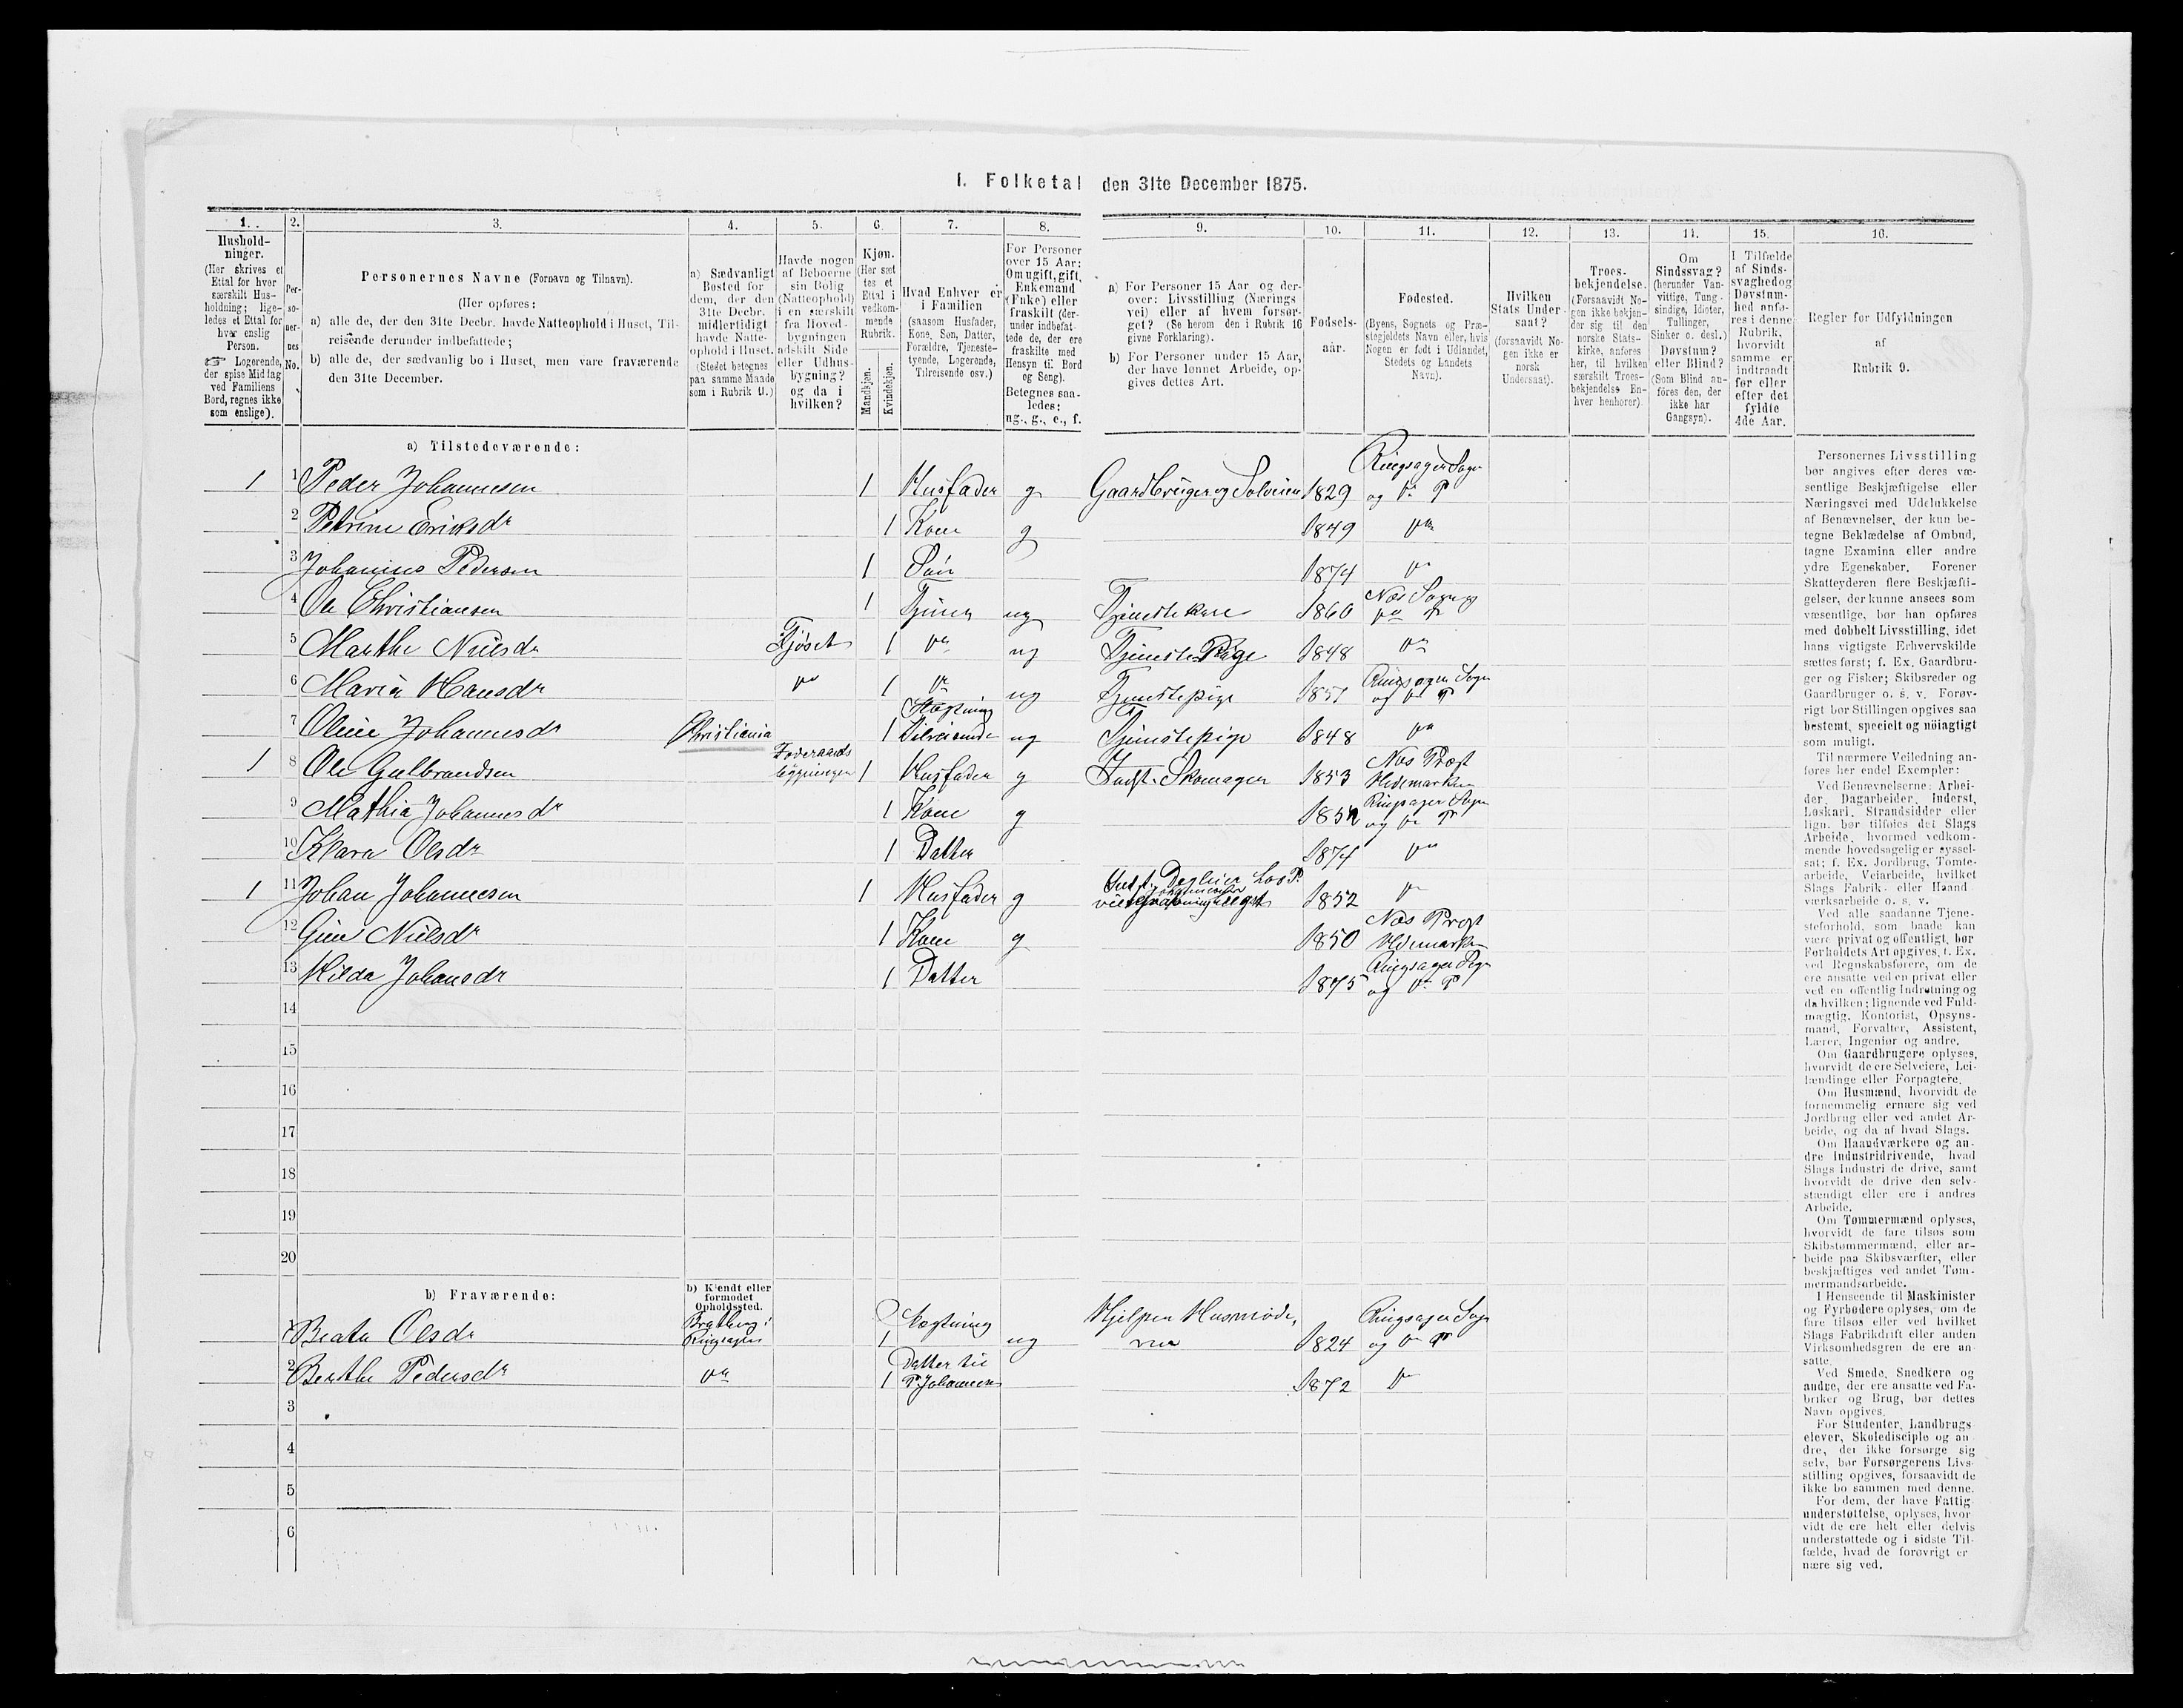 I. Folketal den 31te December 1875.
1. 2. 3. 4. 5. 6. 7. 8. 9. 10. 11. 12. 13. 14. 15. 16.
Hushold-
ninger.
(Her skrives et
Ettal for hver
særskilt Hus-
holdning; lige-
ledes et Ettal for
hver enslig
Person.
☞ Logerende,
der spise Middag
ved Familiens
Bord, regnes ikke
som enslige).
Per-
so-
ner-
nes
No.
Personernes Navne (Fornavn og Tilnavn).
(Her opføres:
a) alle de, der den 31te Decbr. havde Natteophold i Huset, Til-
reisende derunder indbefattede;
b) alle de, der sædvanlig bo i Huset, men vare fraværende
den 31te December.
a) Sædvanligt
Bosted for
dem, der den
31te Decbr.
midlertidigt
havde Natte-
ophold i Huset.
(Stedet betegnes
paa samme Maade
som i Rubrik 9.)
Havde nogen
af Beboerne
sin Bolig
(Natteophold)
i en særskilt
fra Hoved-
bygningen
adskilt Side
eller Udhus-
bygning?
og da i
hvilken?
Kjøn.
(Her sæt
tes et
Ettal i
vedkom-
mende
Rubrik.
Mandkjøn.
Kvindekjøn.
Hvad Enhver er
i Familien
(saasom Husfader,
Kone, Søn, Datter,
Forældre, Tjeneste-
tyende, Logerende,
Tilreisende osv.)
For Personer
over 15 Aar:
Om ugift, gift,
Enkemand
(Enke) eller
fraskilt (der-
under indbefat-
tede de, der ere
fraskilte med
Hensyn til Bord
og Seng).
Betegnes saa-
ledes:
ug., g., e., f.
a) For Personer 15 Aar og der-
over: Livsstilling (Nærings
vei) eller af hvem forsør-
get? (Se herom den i Rubrik 16
givne Forklaring).
b) For Personer under 15 Aar,
der have lønnet Arbeide, op-
gives dettes Art.
Fødsels-
aar.
Fødested.
(Byens, Sognets og Præ-
stegjeldets Navn eller, hvis
Nogen er født i Udlandet,
Stedets og Landets
Navn).
Hvilken
Stats Under-
saat?
(forsaavidt No-
gen ikke er
norsk
Undersaat).
Troes-
bekjendelse.
(Forsaavidt No-
gen ikke bekjen-
der sig til den
norske Stats-
kirke, anføres
her, til hvilken
særskilt Troes-
bekjendelse En-
hver henhører).
Om
Sindssvag?
(herunder Van-
vittige, Tung-
sindige, Idioter,
Tullinger,
Sinker o. desl.)
Døvstum?
eller Blind?
(Som Blind an-
føres den, der
ikke har
Gangsyn).
I Tilfælde
af Sinds-
svaghed og
Døvstum-
hed anfø-
res i denne
Rubrik,
hvorvidt
samme er
indtraadt
før eller
efter det
fyldte
4de Aar.
Regler for Udfyldningen
af
Rubrik 9.
a) Tilstedeværende:
1 1 Peder Johannesen 1 Husfader g Gaardbruger og Selveier 1829 Ringsager Sogn og do P
2 Petrine Eriksdr 1 Kone g 1849 do
3 Johannes Pedersen 1 Søn 1874 do
4 Ole Christiansen 1 Tjener ug Tjenestekarl 1860 Næs Sogn og do P
5 Marthe Nilsdr Fjøset 1 do ug Tjeneste Pige 1848 do
6 Maria Hansdr do 1 do ug Tjenestepige 1851 Ringsager Sogn og do P
7 Oline Johannesdr Christiania 1 Slegtning Tilreisende ug Tjenestepige 1848 do
1 8 Ole Gulbrandsen Føderaads bygningen 1 Husfader g Indst. Skomager 1853 Næs Præst Hedemarken
9 Mathia Johannesdr 1 Kone g Ringsager Sogn og do P
10 Klara Olsdr 1 Datter 1874 do
1 11 Johan Johannesen 1 Husfader g 1852 do
12 Nilsdr 1 Kone g 1850 Næs Præst Hedemarken
13 Hilda Johansdr 1 Datter 1875 Ringsager Sogn og do P
14
15
16
17
18
19
20
b) Fraværende:
b) Kjendt eller
formodet
Opholdssted.
1 Beata Olsdr Ringsager 1 Slegtning ug Hjelper Husmode, ren 1824 Ringsager Sogn og do P
2 Berthe Pedersdr do 1 Datter til P. Johannesen 1872 do
3
4
5
6
Personernes Livsstilling
bør angives efter deres væ-
sentlige Beskjæftigelse eller
Næringsvei med Udelukkelse
af Benævnelser, der kun be-
tegne Beklædelse af Ombud,
tagne Examina eller andre
ydre Egenskaber. Forener
Skatteyderen flere Beskjæfti-
gelser, der kunne ansees som
væsentlige, bør han opføres
med dobbelt Livsstilling, idet
hans vigtigste Erhvervskilde
sættes først; f. Ex. Gaardbru-
ger og Fisker; Skibsreder og
Gaardbruger o. s. v. Forøv-
rigt bør Stillingen opgives saa
bestemt, specielt og nöiagtigt
som muligt.
Til nærmere Veiledning an-
føres her endel Exempler:
Ved Benævnelserne: Arbei-
der, Dagarbeider, Inderst,
Løskarl, Strandsidder eller
lign. bør tilføies det Slags
Arbeide, hvormed vedkom-
mende hovedsagelig er syssel-
sat; f. Ex. Jordbrug, Tomte-
arbeide, Veiarbeide, hvilket
Slags Fabrik- eller Haand-
værksarbeide o. s. v.
Ved alle saadanne Tjene-
steforhold, som baade kan
være privat og offentligt, bør
Forholdets Art opgives, f. Ex.
ved Regnskabsførere, om de
ere ansatte ved en privat eller
ved en offentlig Indretning og
da hvilken; lignende ved Fuld-
mægtig, Kontorist, Opsyns-
mand, Forvalter, Assistent,
Lærer, Ingeniør og andre.
Om Gaardbrugere oplyses,
hvorvidt de ere Selveiere, Lei-
lændinge eller Forpagtere.
Om Husmænd, hvorvidt de
fornemmelig ernære sig ved
Jordbrug eller ved andet Ar-
beide, og da af hvad Slags.
Om Haandværkere og an-
dre Industridrivende, hvad
Slags Industri de drive, samt
hvorvidt de drive den selv-
stændigt eller ere i andres
Arbeide.
Om Tømmermænd oplyses,
hvorvidt de fare tilsøs som
Skibstømmermænd, eller ar-
beide paa Skibsværfter, eller
beskjæftiges ved andet Tøm-
mermandsarbeide.
I Henseende til Maskinister
og Fyrbødere oplyses, om de
fare tilsøs eller ved hvilket
Slags Fabrikdrift eller anden
Virksomhedsgren de ere an-
satte.
Ved Smede, Snedkere og
andre, der ere ansatte ved Fa-
briker og Brug, bør dettes
Navn opgives.
For Studenter, Landbrugs-
elever, Skoledisciple og an-
dre, der ikke forsørge sig
selv, bør Forsørgerens Livs-
stilling opgives, forsaavidt de
ikke bo sammen med denne.
For dem, der have Fattig-
understøttelse, oplyses, hvor-
vidt de ere helt eller delvis
understøttede og i sidste Til-
fælde, hvad de forøvrigt er-
nære sig ved.